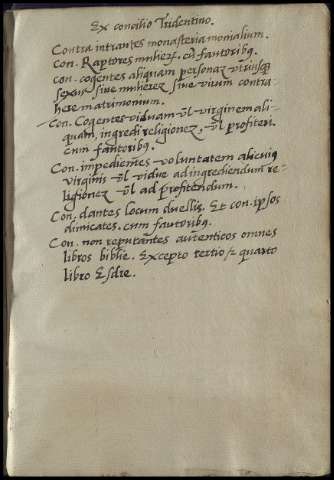 Ex concilio Tridentino.
Contra intrantes monasteria monialium.
Con. Raptores mulierꝝ. cū fautoribꝰ.
Con. cogentes aliquam personaꝫ utriusqꝫ
sexus siue mulierez siue uirum contra-
here matrimonium.
Con. Cogentes viduam ūl virginem ali-
quam, ingredi religionez, ūl profiteri.
Cum fautoribꝰ.
Con. impedientes voluntatem alicuiꝰ
virginis ūl vidue ad ingrediendum re-
ligionez ūl ad profitendum.
Con. dantes locum duellis. Et con. ipsos
dimicates. cum fautoribꝰ.
Con. non reputantes autenticos omnes
libros biblie. Excepto tertio et quarto
libro Esdre.